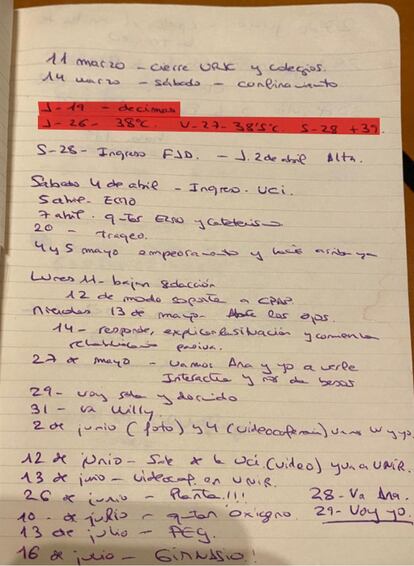 11 marzo - cierre URJC y colegios.
14 marzo - sábado - confinamiento
J-19 - decimas
J-26 - 38ºC. V-27-38'5ºC. S-28 +39
S-28 - Ingreso FJD. - J. 2 de abril Alta.
Sábado 4 de abril - Ingreso UCI.
5 abril - ECMO
7 abril. quitar ECMO y cateterismo
20 - Traqeo.
4 y 5 mayo empeoramiento y
Lunes 11 - bajan sedación
12 de modo soporte a CPAP
Miércoles 13 de mayo. Abre los ojos.
14 - responde, explican situación y comienza
rehabilitación pasiva.
27 de mayo - vamos Ana y yo a verle
Interactúa y nos da besos
29 - voy sola y dormido
31 - va Willy.
2 de junio (foto) y 4 (videoconferencia) vamos W y yo.
12 de junio - Sale de la UCI (video) y va a UNIR.
13 de junio - videoconf. en UNIR.
26 de junio - Planta!!! 28 - Va Ana.
10 - de julio - quitan oxígeno. 29 - Voy yo.
13 de julio - PEG.
16 de julio - GIMNASIO!